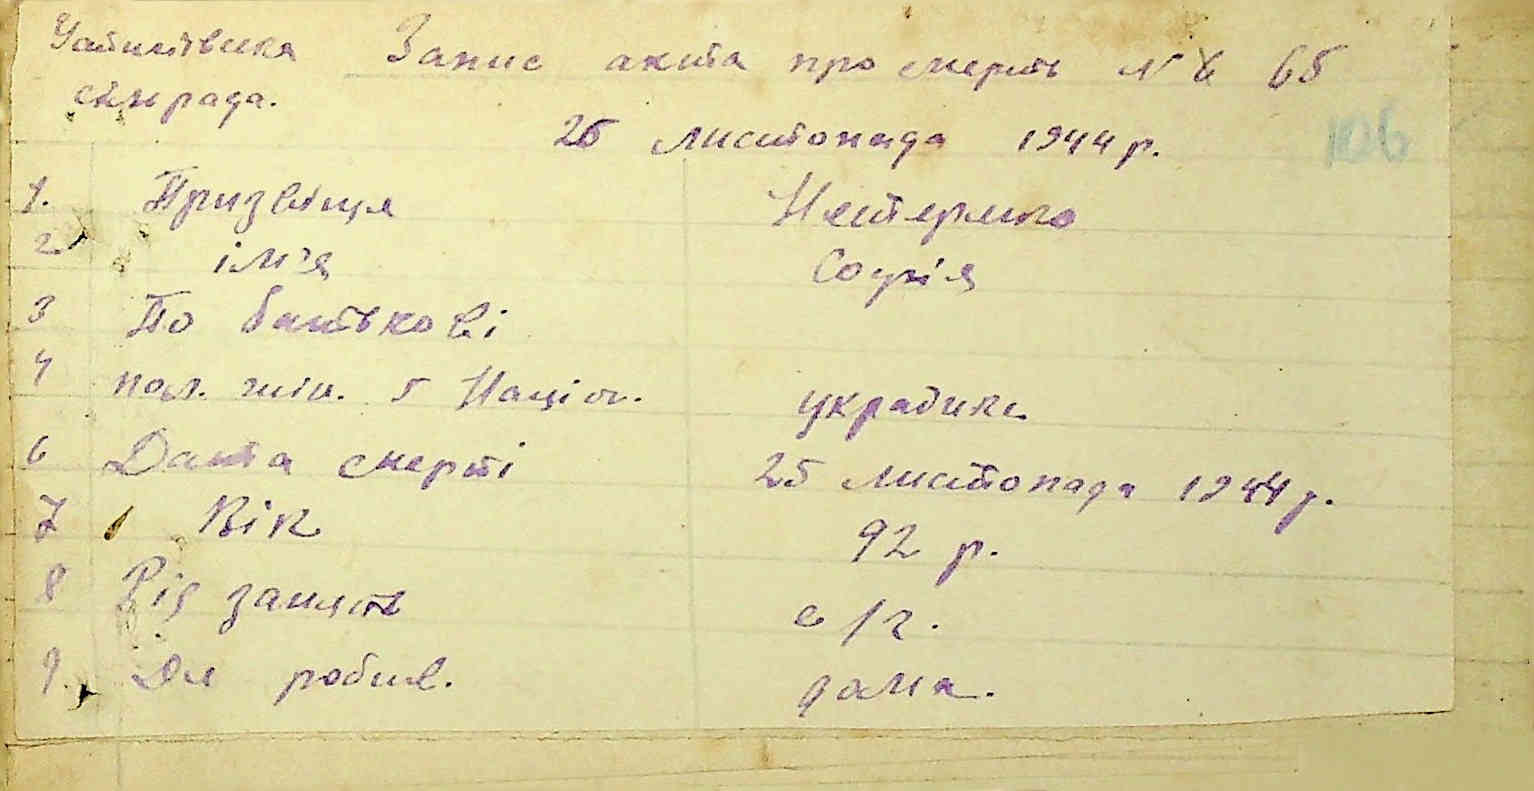 Запис акта про смерть № 65
сільрада.
25 листопада 1944 р.
106
1. Призвіще Нестеренко
2 ім'я Софія
3 По батькові
4 пол. жін. 5 Націон. українка
6 Дата смерті 25 листопада 1944 р.
7 Вік 92 р.
8 Рід занять с/г.
9 Де робив. дома.